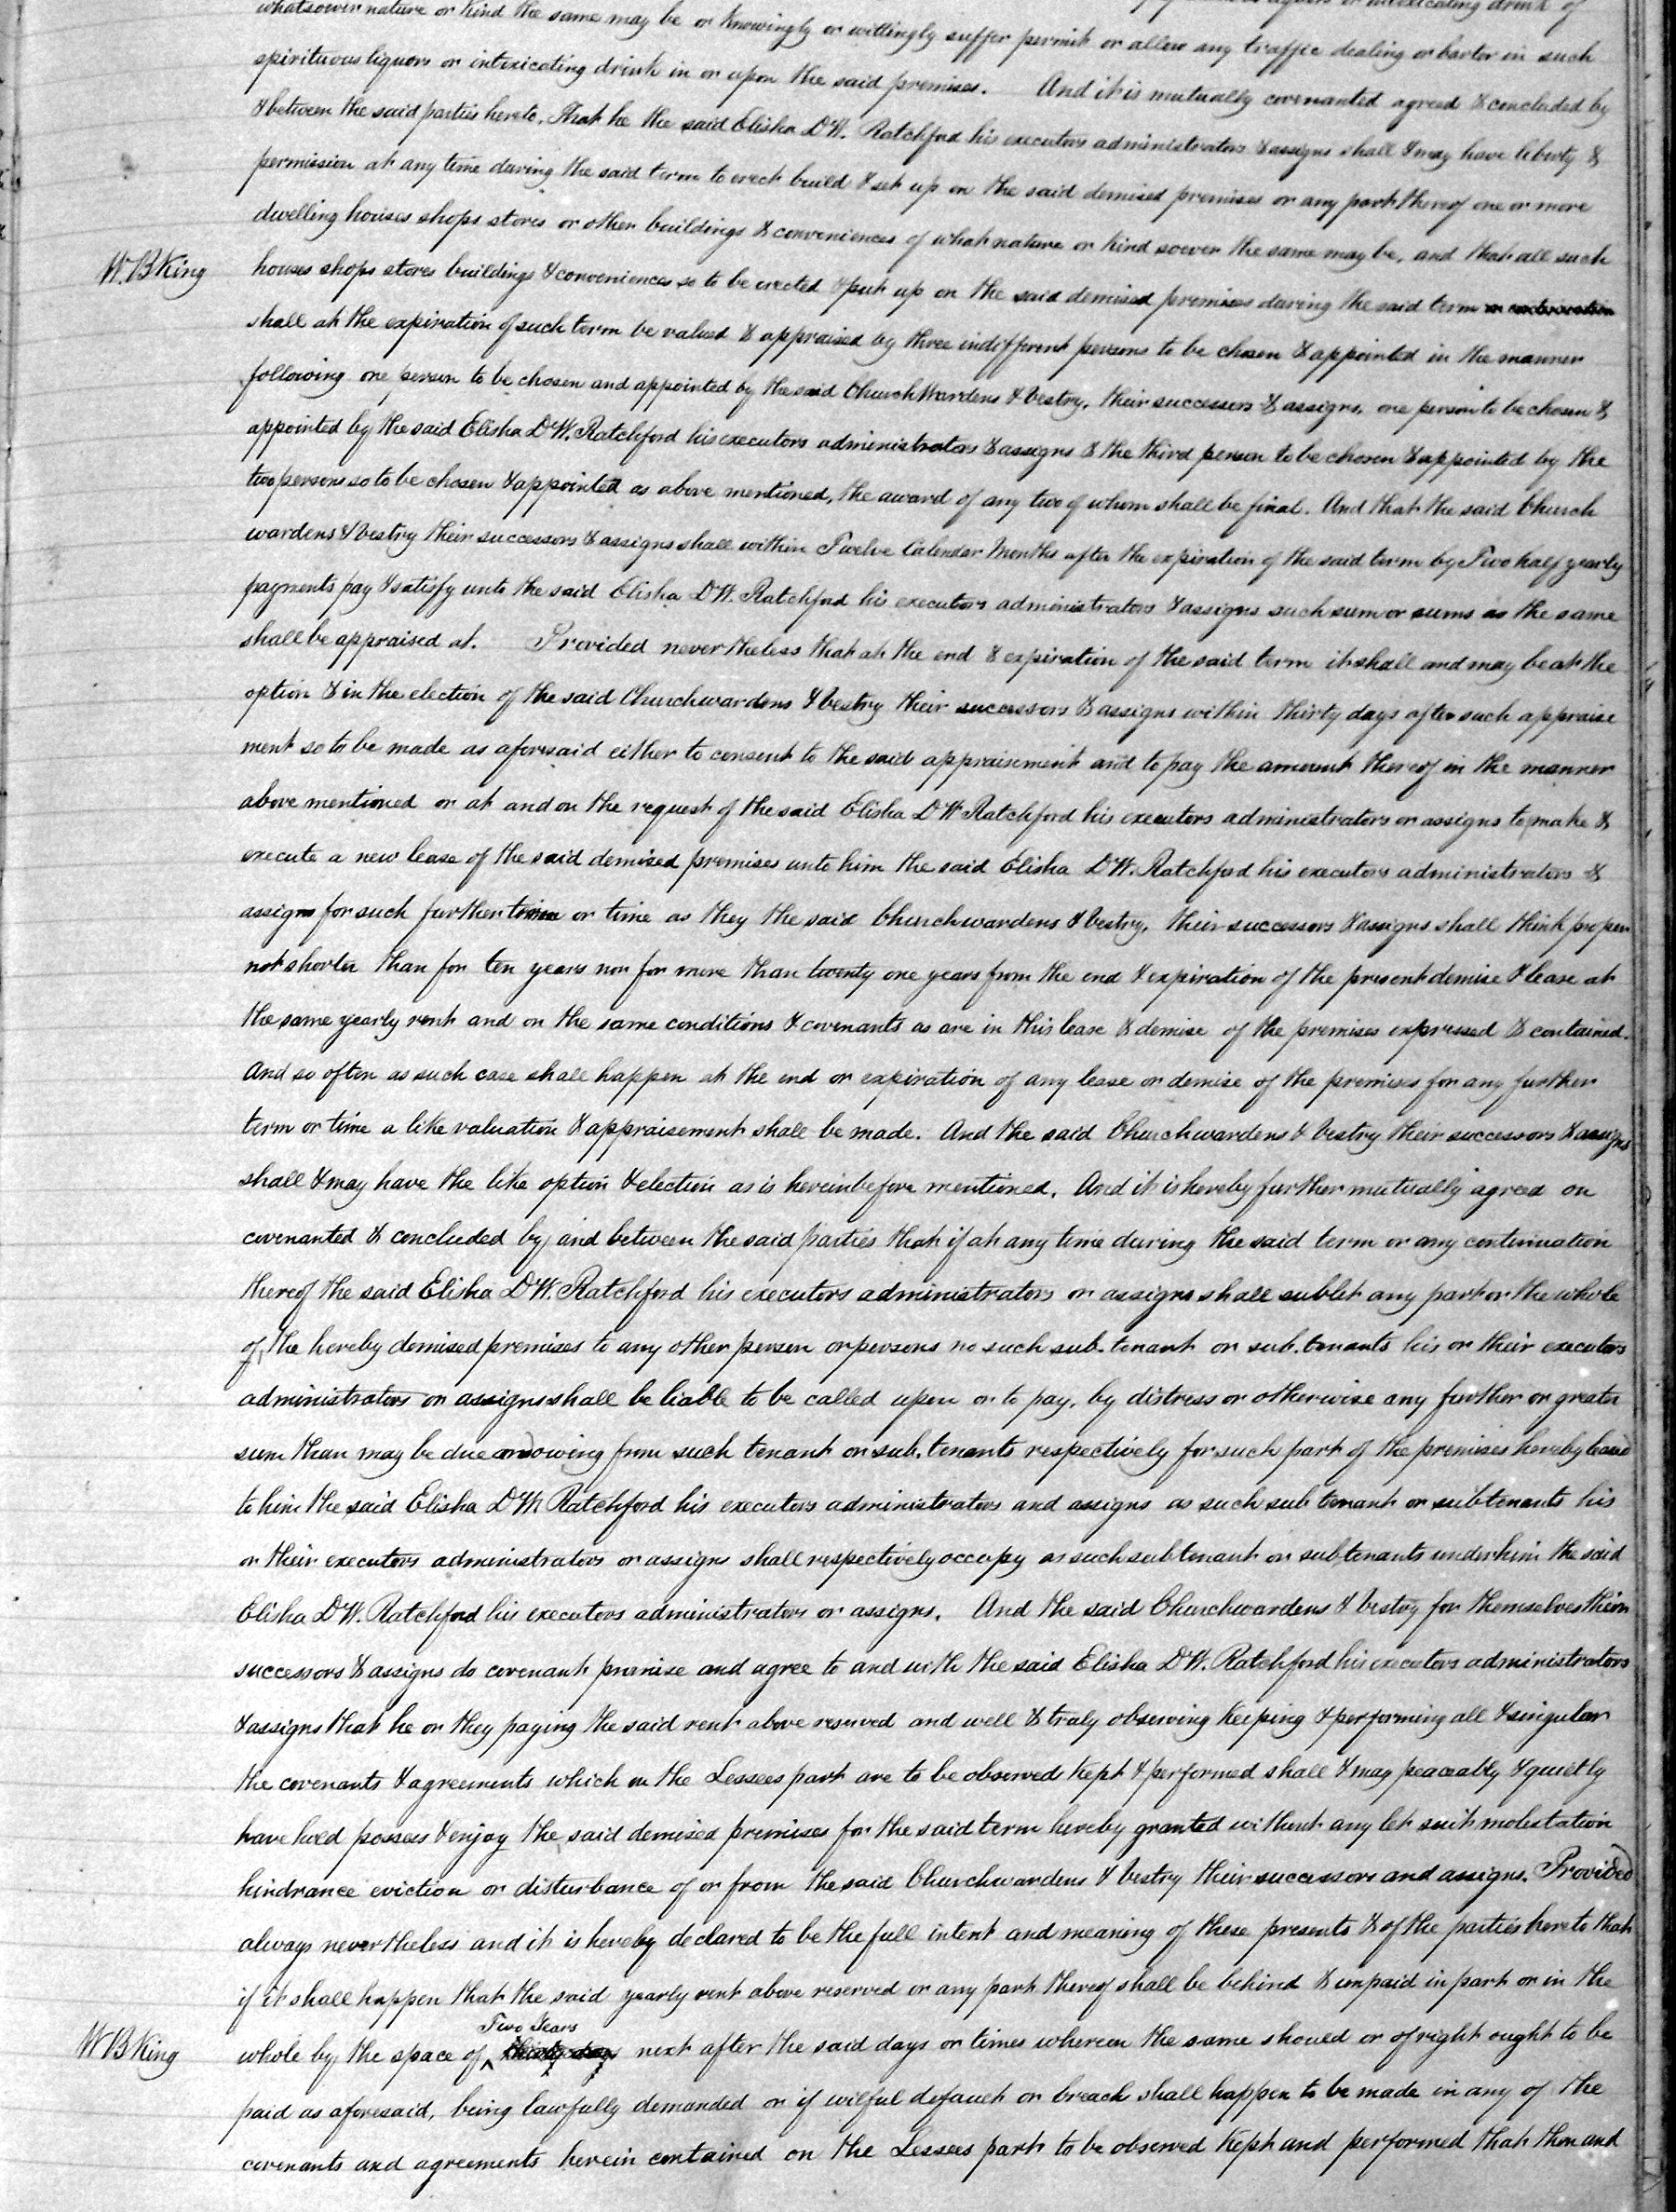 whatsoever nature or kind the same may be or knowingly or wittingly suffer permit or allow any traffic dealing or barter in such
spirituous liquors or intoxicating drink in or upon the said premises. And it is mutually covenanted agreed & concluded by
& between the said parties hereto, That he the said Elisha D W. Ratchford his executors administrators & assigns shall & may have liberty &
permission at any time during the said term to erect build & set up on the said demised premises or any part thereof one or more
dwelling houses shops stores or other buildings & conveniences of what nature or kind soever the same may be, and that all such
W. B King houses shops stores buildings & conveniences so to be erected & put up on the said demised premises during the said term
shall at the expiration of such term be valued & appraised by three indifferent persons to be chosen & appointed in the manner
following one person to be chosen and appointed by the said Church Wardens & Vestry, their successors & assigns, one person to be chosen &
appointed by the said Elisha D W. Ratchford his executors administrators & assigns & the third person to be chosen & appointed by the
two persons so to be chosen & appointed as above mentioned, the award of any two of whom shall be final. And that the said Church
wardens & Vestry their successors & assigns shall within Twelve Calendar Months after the expiration of the said term by Two half yearly
payments pay & satisfy unto the said Elisha D W. Ratchford his executors administrators & assigns such sum or sums as the same
shall be appraised at. Provided nevertheless that at the end & expiration of the said term it shall and may be at the
option & in the election of the said Churchwardens & Vestry their successors & assigns within thirty days after such appraise
ment so to be made as aforesaid either to consent to the said appraisement and to pay the amount thereof in the manner
above mentioned or at and on the request of the said Elisha D W Ratchford his executors administrators or assigns to make &
execute a new lease of the said demised premises unto him the said Elisha D W. Ratchford his executors administrators &
assigns for such further term or time as they the said Churchwardens & Vestry, their successors & assigns shall think proper
not shorter than for ten years nor for more than twenty one years from the end & expiration of the present demise & lease at
the same yearly rent and on the same conditions & covenants as are in this lease & demise of the premises expressed & contained.
And so often as such case shall happen at the end or expiration of any lease or demise of the premises for any further
term or time a like valuation & appraisement shall be made. And the said Churchwardens & Vestry their successors & assigns
shall & may have the like option & election as is hereinbefore mentioned. And it is hereby further mutually agreed on
covenanted & concluded by and between the said parties that if at any time during the said term or any continuation
thereof the said Elisha D W. Ratchford his executors administrators or assigns shall sublet any part or the whole
of the hereby demised premises to any other person or persons no such sub-tenant or sub-tenants his or their executors
administrators or assigns shall be liable to be called upon or to pay, by distress or otherwise any further or greater
sum than may be due and owing from such tenant or sub-tenants respectively for such part of the premises hereby leased
to him the said Elisha D W. Ratchford his executors administrators and assigns as such sub tenant or subtenants his
or their executors administrators or assigns shall respectively occupy as such subtenant or subtenants under him the said
Elisha D W. Ratchford his executors administrators or assigns. And the said Churchwardens & Vestry for themselves their
successors & assigns do covenant promise and agree to and with the said Elisha D W. Ratchford his executors administrators
& assigns that he or they paying the said rent above reserved and well & truly observing keeping & performing all & singular
the covenants & agreements which on the Lessees part are to be observed kept & performed shall & may peaceably & quietly
have hold possess & enjoy the said demised premises for the said term hereby granted without any let suit molestation
hindrance eviction or disturbance of or from the said Churchwardens & Vestry their successors and assigns. Provided
always nevertheless and it is hereby declared to be the full intent and meaning of these presents & of the parties hereto that
if it shall happen that the said yearly rent above reserved or any part thereof shall be behind & unpaid in part or in the
Two Years
W B King whole by the space of thirty days next after the said days or times wherein the same should or of right ought to be
paid as aforesaid, being lawfully demanded or if wilful default or breach shall happen to be made in any of the
covenants and agreements herein contained on the Lessees part to be observed kept and performed that then and